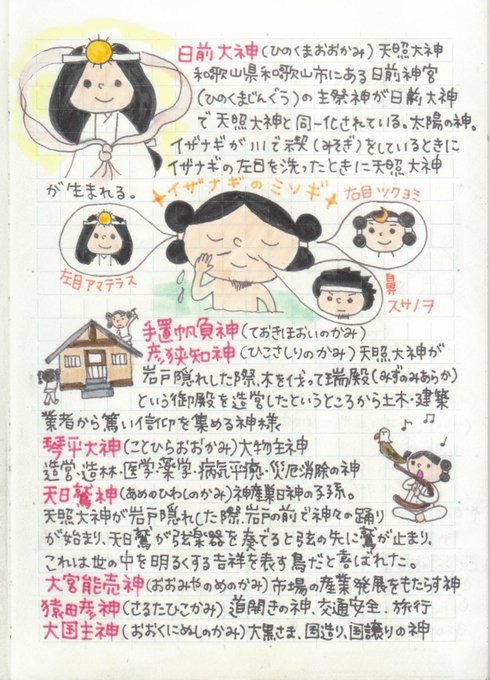 日前大神(ひのくまおおかみ)天照大神
和歌山県和歌山市にある日前神宮
(ひのくまじんぐう)の主祭神が日前大神
で天照大神と同一化されている。太陽の神。
イザナギが川で禊(みそぎ)をしているときに
イザナギの左目を洗ったときに天照大神
が生まれる。
イザナギのミソギ
右目ツクヨミ
左目アマテラス
鼻
スサノヲ
手置帆負神(ておきほおいのかみ)
彦狭知神(ひこさしりのかみ)天照大神が
岩戸隠れした際、木を伐って瑞殿(みずのみあらか)
という御殿を造営したというところから土木・建築
業者から篤い信仰を集める神様
琴平大神(ことひらおおかみ)大物主神
造営・造林・医学・薬学・病気平癒・災厄消除の神
天日鷲神(あめのひわしのかみ)神産巣日神の子孫。
天照大神が岩戸隠れした際、岩戸の前で神々の踊り
が始まり、天日鷲が弦楽器を奏でると弦の先に鷲が止まり、
これは世の中を明るくする吉祥を表す鳥だと喜ばれた。
大宮能売神(おおみやのめのかみ)市場の産業発展をもたらす神
猿田彦神(さるたひこかみ)道開きの神、交通安全、旅行
大国主神(おおくにぬしのかみ)大黒さま、国造り、国譲りの神